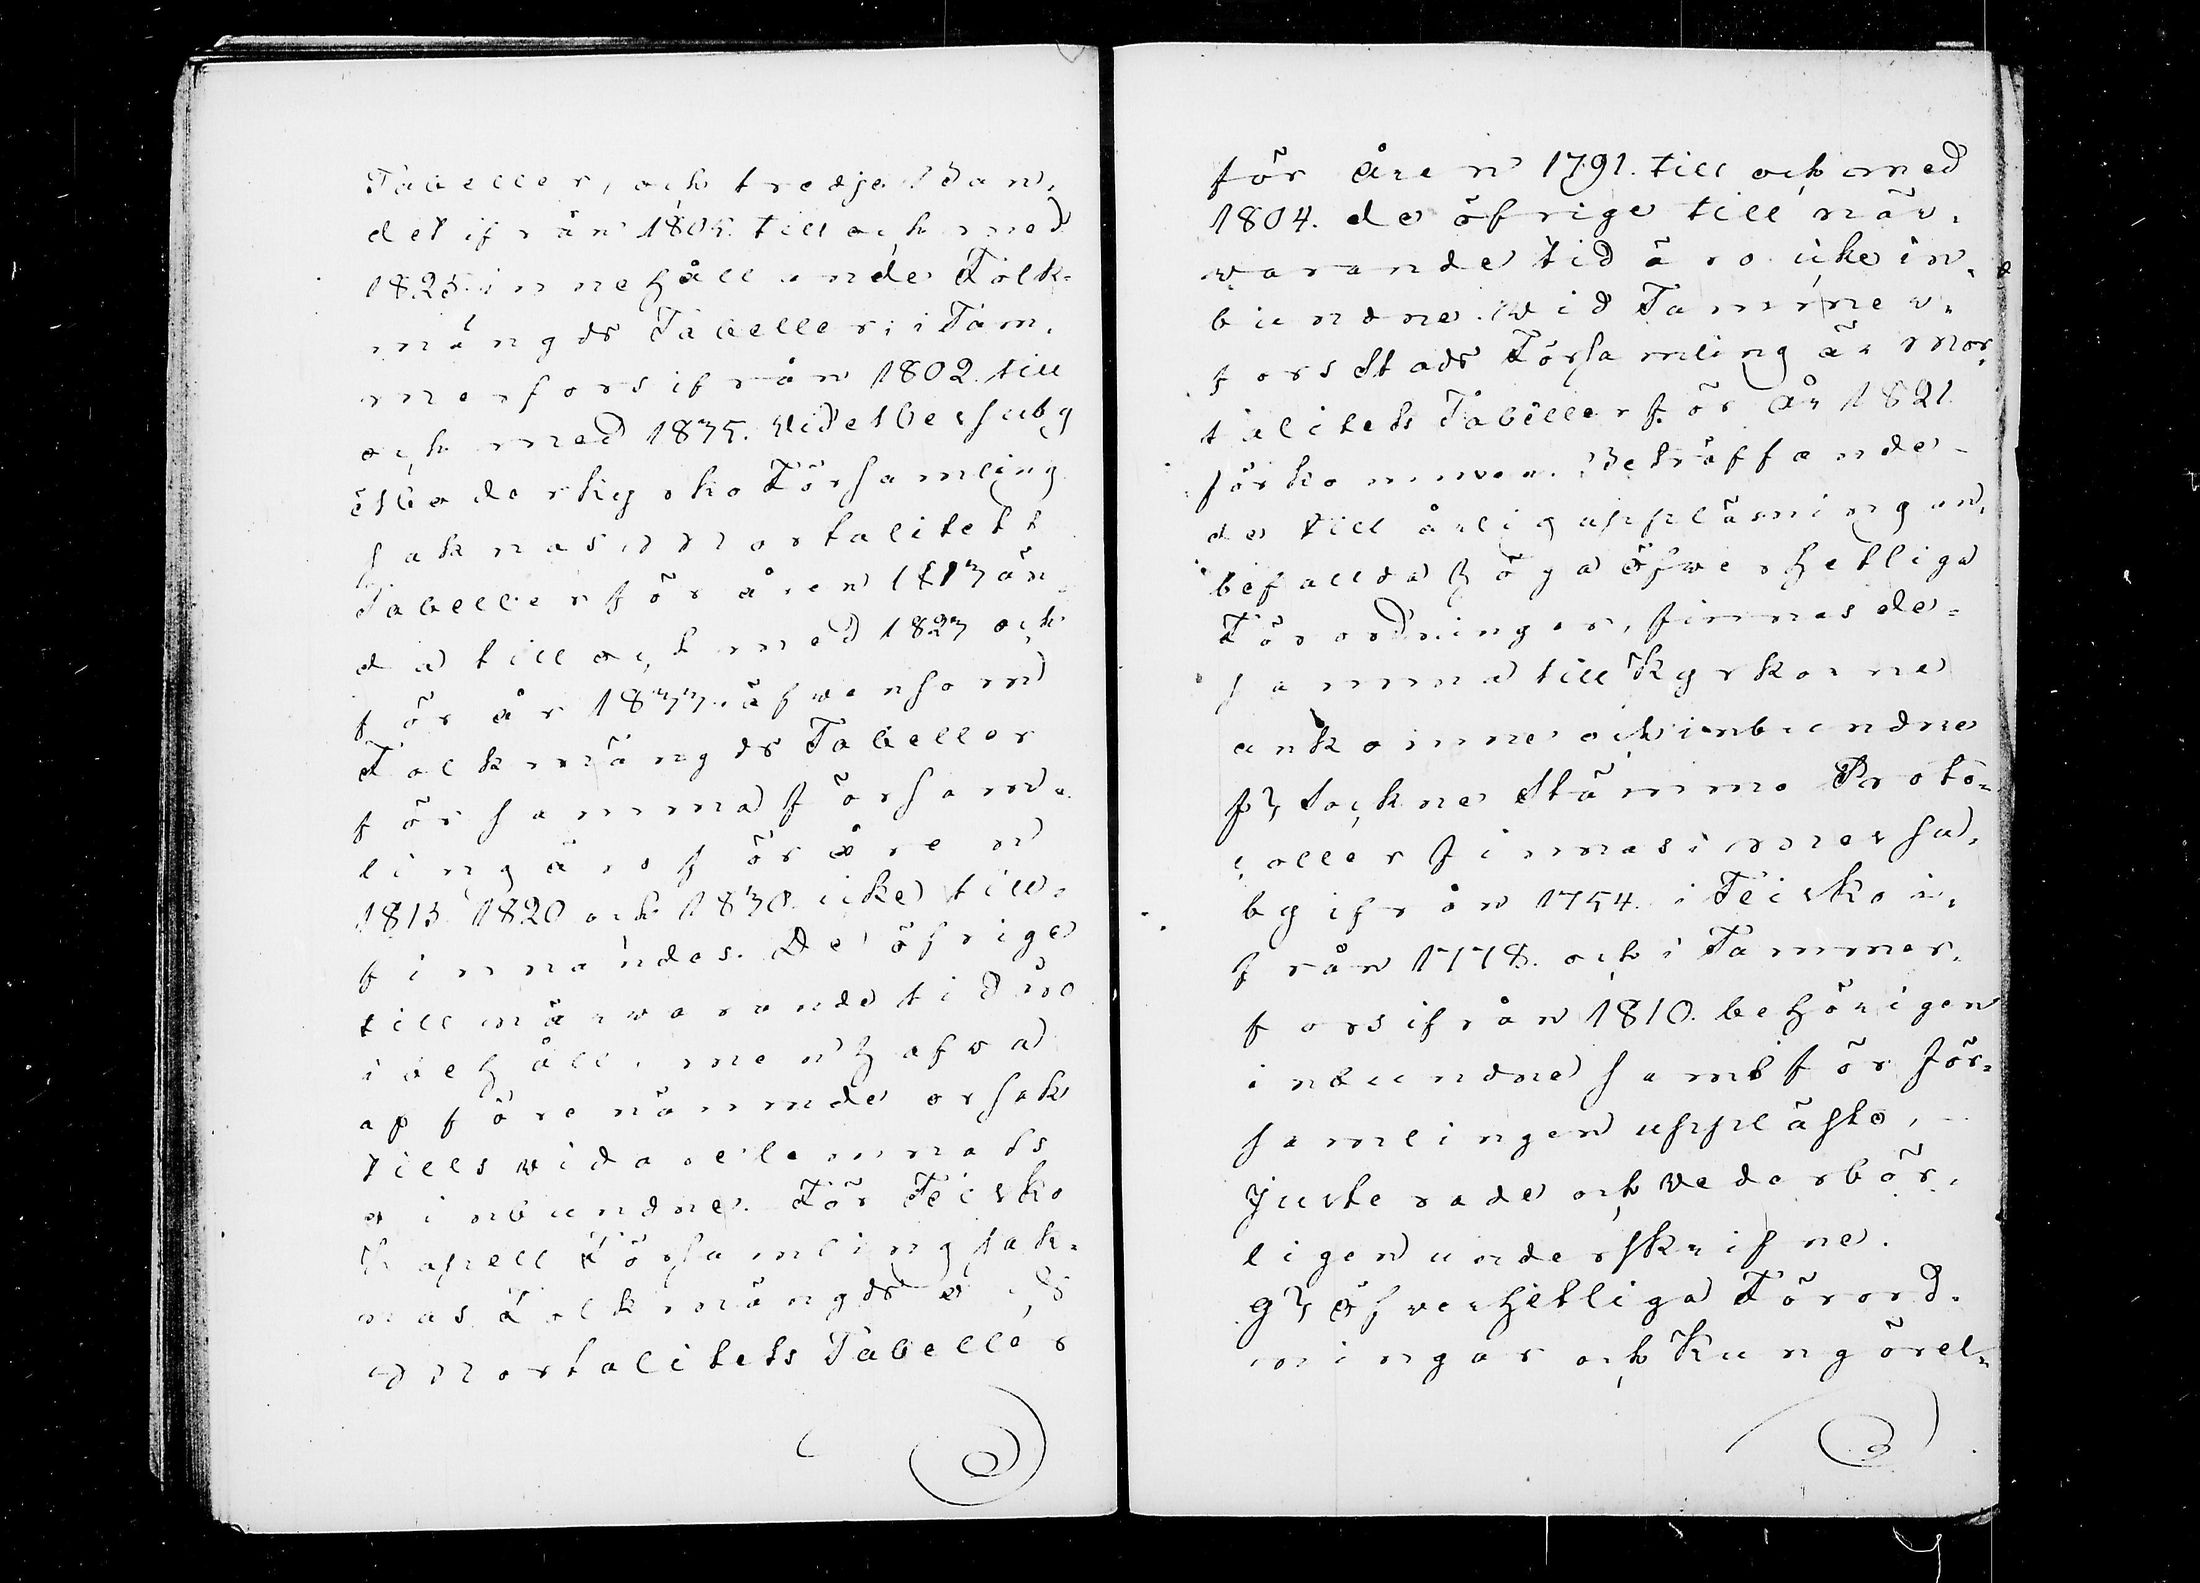 Tabeller, och tredje Ban,
det ifrån 1805. till och med
1825. innehållande Folk=
mängds Tabeller; i Tam,
merfors ifrån 1802. till
och med 1835. Vid Messuby
Moderkyrko Församling
saknas Mortalitets
Tabeller för åren 1813 än,
da till och med 1823 och
för år 1833. äfvensom
Folkmängds Tabeller
för samma Försam=
ling äro för åren
1815 1820 och 1830 icke till,
finnandes. De öfrige
till närvarande tid äro
i behåll, men hafva
af förenämnde orsak
tills vidare lemnats
oinbundne. För Teisko
Capell Församling sak=
nas Folkmängds och
Mortalitets Tabeller
för åren 1791. till och med
1804. de öfrige till när,
varande tid äro icke in,
bundne. Vid Tammer,
fors Stads Församling är Mor,
talitets Tabeller för år 1821
förkommen. Beträffande
de till årlig uppläsning an,
befallda höga Öfverhetliga
Förordningar, finnas de=
samma till Kyrkorne
ankomne och inbundne
f) Sockne Stämmo Proto=
coller finnas i Messu,
by ifrån 1754. i Teisko i,
från 1778. och i Tammer,
fors ifrån 1810. behörigen
inbundne samt för för=
samlingen uppläste,
justerade och Vederbör,
ligen underskrifne.
g) Öfverhetliga Förord=
ningar och Kungörel=